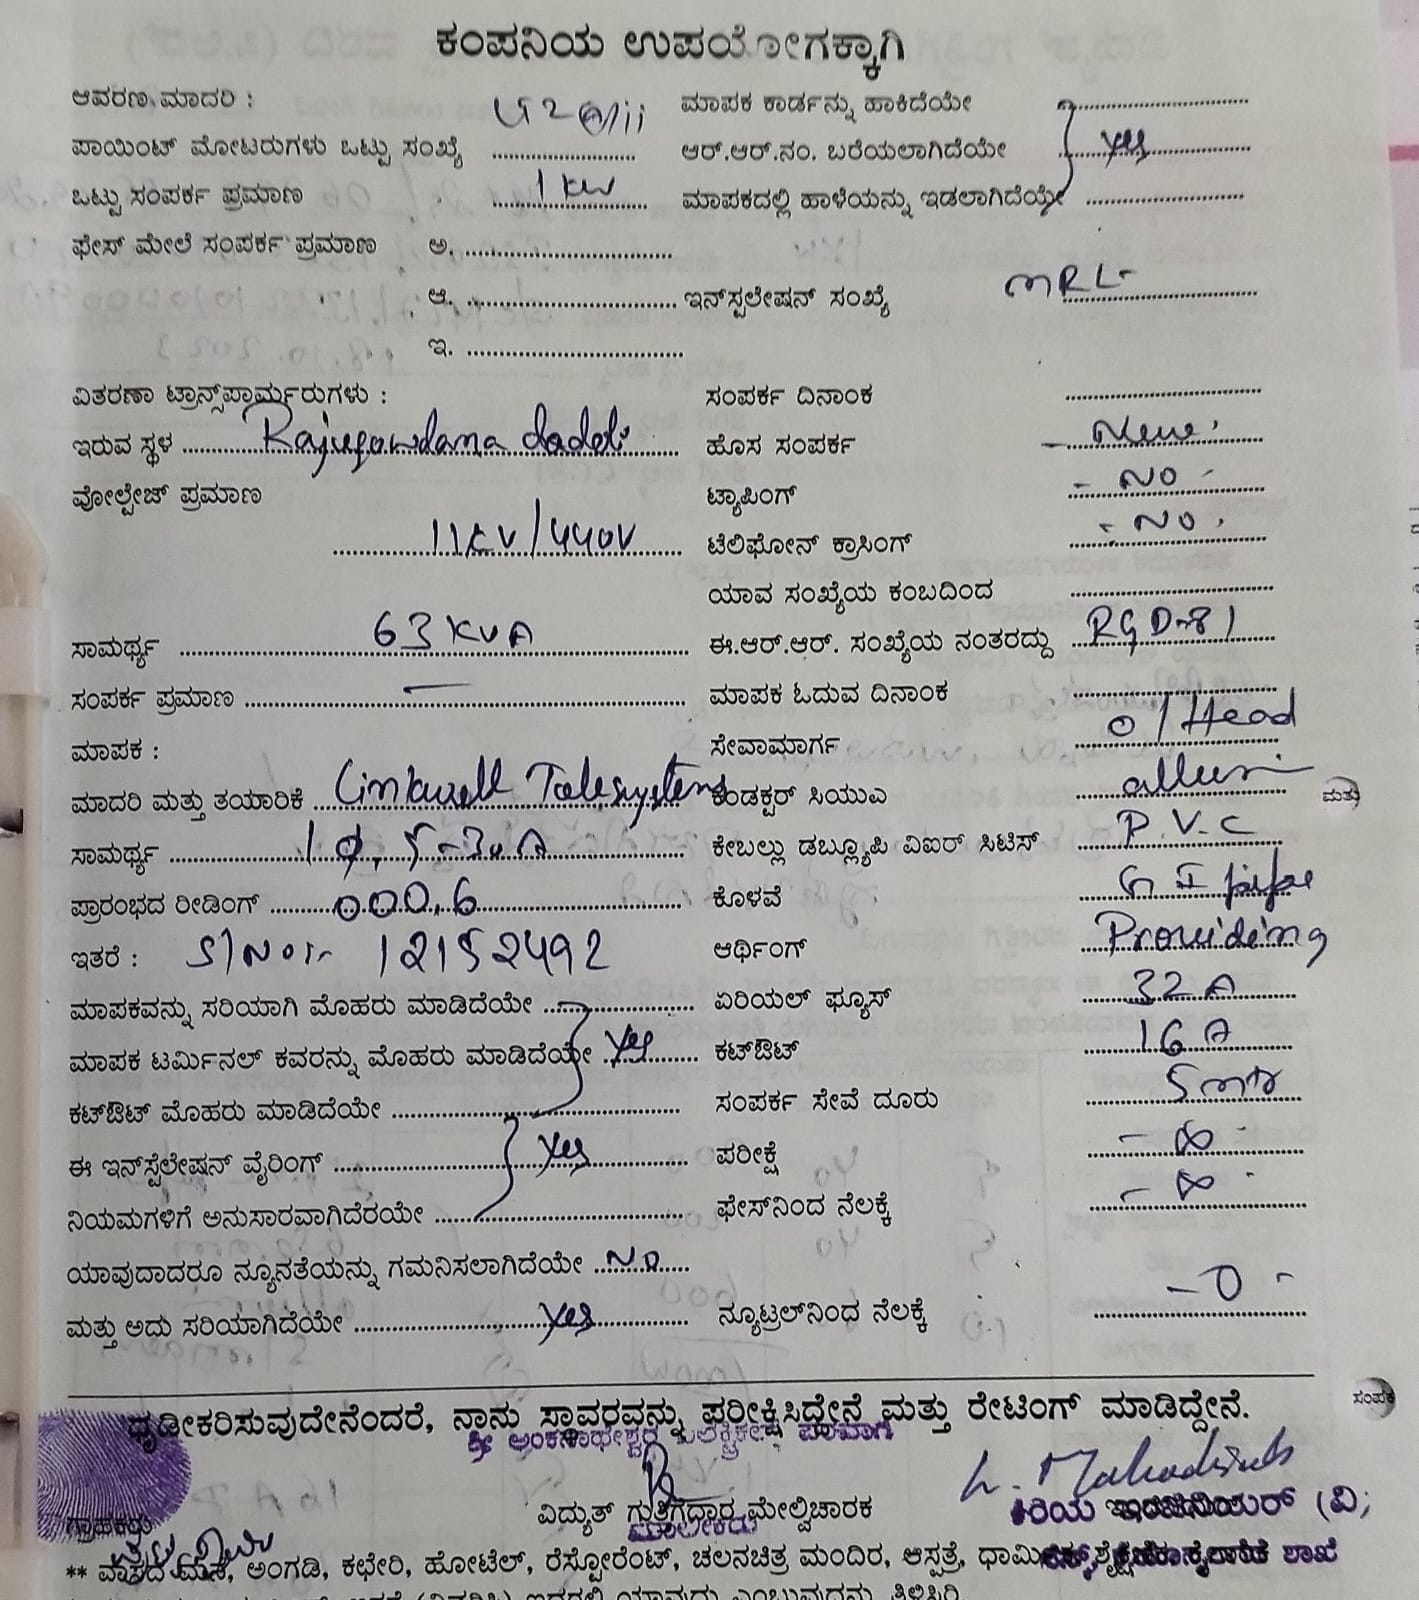 ಕಂಪನಿಯ ಉಪಯೋಗಕ್ಕಾಗಿ
ಆವರಣ ಮಾದರಿ : ಮಾಪಕ ಕಾರ್ಡನ್ನು ಹಾಕಿದೆಯೇ
ಪಾಯಿಂಟ್ ಮೋಟರುಗಳು ಒಟ್ಟು ಸಂಖ್ಯೆ ಆರ್.ಆರ್.ನಂ. ಬರೆಯಲಾಗಿದೆಯೇ yes
ಒಟ್ಟು ಸಂಪರ್ಕ ಪ್ರಮಾಣ 1 KW ಮಾಪಕದಲ್ಲಿ ಹಾಳೆಯನ್ನು ಇಡಲಾಗಿದೆಯೇ
ಫೇಸ್ ಮೇಲೆ ಸಂಪರ್ಕ ಪ್ರಮಾಣ ಅ.
ಆ. ಇನ್‌ಸ್ಪಲೇಷನ್ ಸಂಖ್ಯೆ MRL-
ಇ.
ವಿತರಣಾ ಟ್ರಾನ್ಸ್‌ಪಾರ್ಮ್ರರುಗಳು : ಸಂಪರ್ಕ ದಿನಾಂಕ
ಇರುವ ಸ್ಥಳ Rajugowdana doddi ಹೊಸ ಸಂಪರ್ಕ - New
ವೋಲ್ಟೇಜ್ ಪ್ರಮಾಣ ಟ್ಯಾಪಿಂಗ್ - NO -
11KV/440V ಟೆಲಿಫೋನ್ ಕ್ರಾಸಿಂಗ್ - NO.
ಯಾವ ಸಂಖ್ಯೆಯ ಕಂಬದಿಂದ
ಸಾಮರ್ಥ್ಯ 63 KVA ಈ.ಆರ್.ಆರ್. ಸಂಖ್ಯೆಯ ನಂತರದ್ದು RGD-81
ಸಂಪರ್ಕ ಪ್ರಮಾಣ — ಮಾಪಕ ಓದುವ ದಿನಾಂಕ
ಮಾಪಕ : ಸೇವಾಮಾರ್ಗ o/Head
ಮಾದರಿ ಮತ್ತು ತಯಾರಿಕೆ Linkwell Telesystems ಕಂಡಕ್ಟರ್ ಸಿಯುಎ ಮತ್ತು
ಸಾಮರ್ಥ್ಯ 1 φ, 5-30A ಕೇಬಲ್ಲು ಡಬ್ಲ್ಯೂಪಿ ವಿಐರ್ ಸಿಟಿಸ್ P.V.C
ಪ್ರಾರಂಭದ ರೀಡಿಂಗ್ 000.6 ಕೊಳವೆ G I pipe
ಇತರೆ : S/No:- 12152492 ಆರ್ಥಿಂಗ್ Provideing
ಮಾಪಕವನ್ನು ಸರಿಯಾಗಿ ಮೊಹರು ಮಾಡಿದೆಯೇ ಏರಿಯಲ್ ಫ್ಯೂಸ್ 32 A
ಮಾಪಕ ಟರ್ಮಿನಲ್ ಕವರನ್ನು ಮೊಹರು ಮಾಡಿದೆಯೇ yes ಕಟ್‌ಔಟ್ 16 A
ಕಟ್‌ಔಟ್ ಮೊಹರು ಮಾಡಿದೆಯೇ ಸಂಪರ್ಕ ಸೇವೆ ದೂರು 5 mtr
ಈ ಇನ್‌ಸ್ಪೆಲೇಷನ್ ವೈರಿಂಗ್ yes ಪರೀಕ್ಷೆ - ∞ -
ನಿಯಮಗಳಿಗೆ ಅನುಸಾರವಾಗಿದೆರಯೇ ಫೇಸ್‌ನಿಂದ ನೆಲಕ್ಕೆ - ∞ -
ಯಾವುದಾದರೂ ನ್ಯೂನತೆಯನ್ನು ಗಮನಿಸಲಾಗಿದೆಯೇ NO
ಮತ್ತು ಅದು ಸರಿಯಾಗಿದೆಯೇ yes ನ್ಯೂಟ್ರಲ್‌ನಿಂದ ನೆಲಕ್ಕೆ - 0 -
ಧೃಡೀಕರಿಸುವುದೇನೆಂದರೆ, ನಾನು ಸ್ಥಾವರವನ್ನು ಪರೀಕ್ಷಿಸಿದ್ದೇನೆ ಮತ್ತು ರೇಟಿಂಗ್ ಮಾಡಿದ್ದೇನೆ. ಸಂಪರ್ಕ
ಶ್ರೀ ಅಂಕನಾಥೇಶ್ವರ ಎಲೆಕ್ಟ್ರಿಕಲ್ಸ್ ಪರವಾಗಿ
ಗ್ರಾಹಕರು ವಿದ್ಯುತ್ ಗುತ್ತಿಗೆದ್ದಾರ ಮೇಲ್ವಿಚಾರಕ ಕಿರಿಯ ಇಂಜಿನಿಯರ್ (ವಿ)
ಮಾಲೀಕರು
** ವಾಸದ ಮನೆ, ಅಂಗಡಿ, ಕಛೇರಿ, ಹೋಟೆಲ್, ರೆಸ್ಟೋರೆಂಟ್, ಚಲನಚಿತ್ರ ಮಂದಿರ, ಆಸ್ಪತ್ರೆ, ಶಾಖೆ